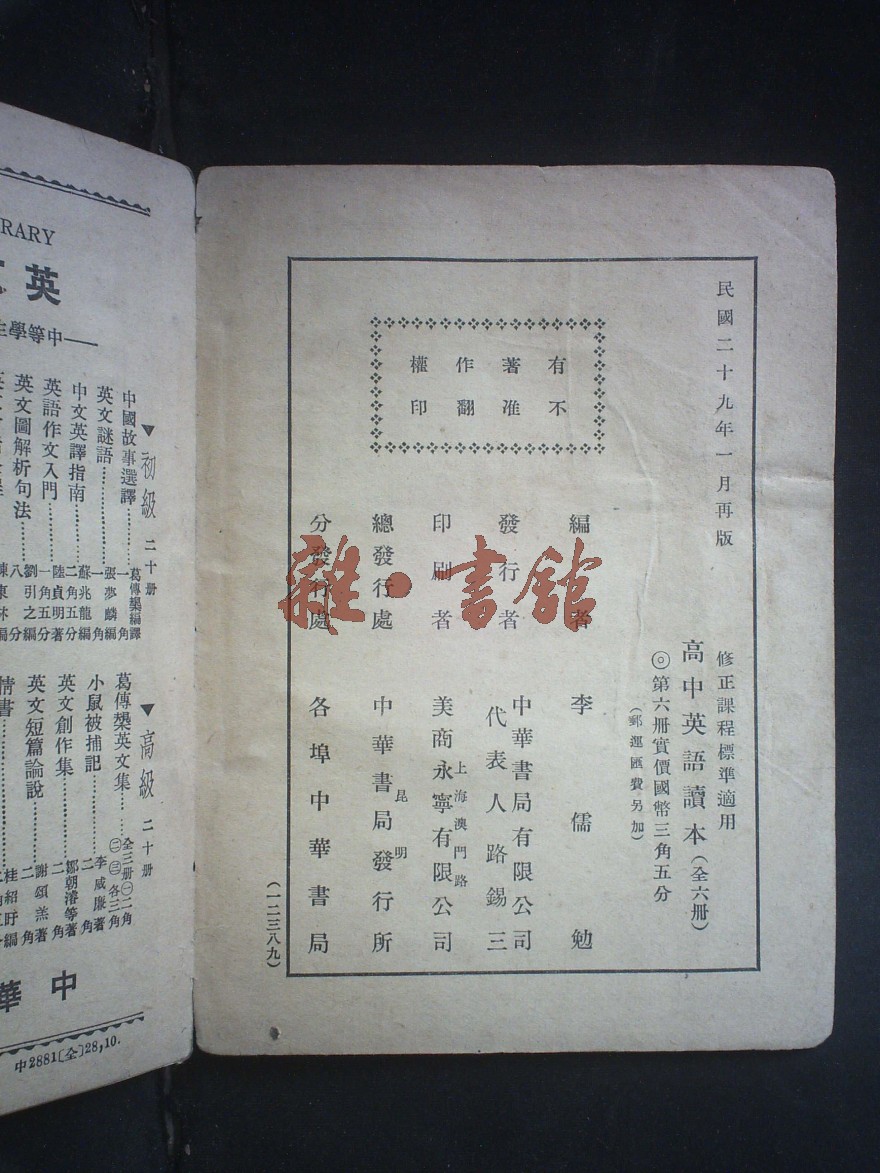 民國二十九年一月再版
修正課程標準適用
高中英語讀本(全六冊)
◎第六冊實價國幣三角五分
(郵運匯費另加)
有著作權
不准翻印
編者 李儒勉
發行者 中華書局有限公司
代表人路錫三
印刷者 上海澳門路
美商永寧有限公司
總發行處 昆明
中華書局發行所
分發行處 各埠中華書局
(一二三八九)
雜·書館
RARY
英
中等學生
▼初級 二十冊
中國故事選譯 葛傳槼編譯 一角
英文謎語 張夢麟編 一角
中文英譯指南 蘇兆龍編 二角五分
英語作文入門 陸貞明著 一角五分
英文圖解析句法 劉引之編 八分
▼高級 二十冊
葛傳槼英文集 全三冊㊀二角㊁㊂各三角
小鼠被捕記 李威廉著 二角
英文創作集 鄒朝濬等著 二角
英文短篇論說 謝頌羔著 二角
情書 桂紹盱編
中華
中2881(全)28,10.